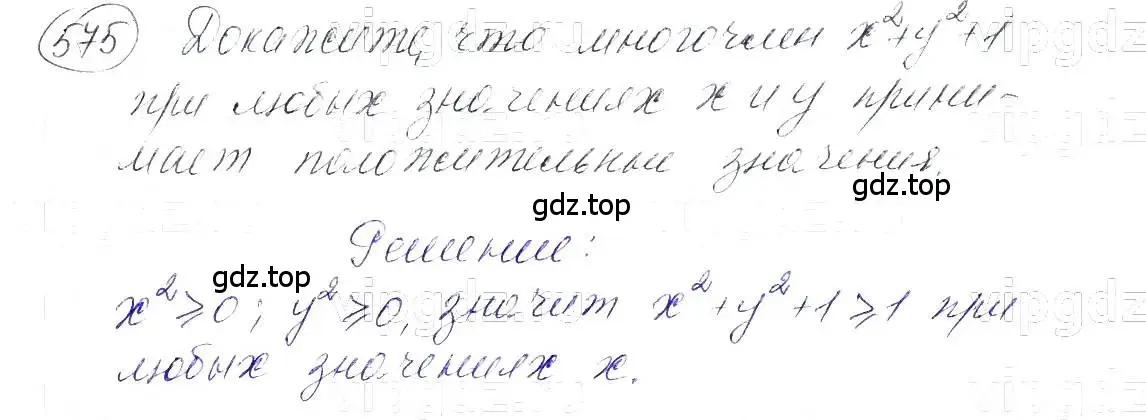 575 Докажите, что многочлен x²+y²+1
при любых значениях x и y прини-
мает положительные значения.
gdz.top
Решение:
gdz.top
x²⩾0; y²⩾0, значит x²+y²+1⩾1 при
любых значениях x.